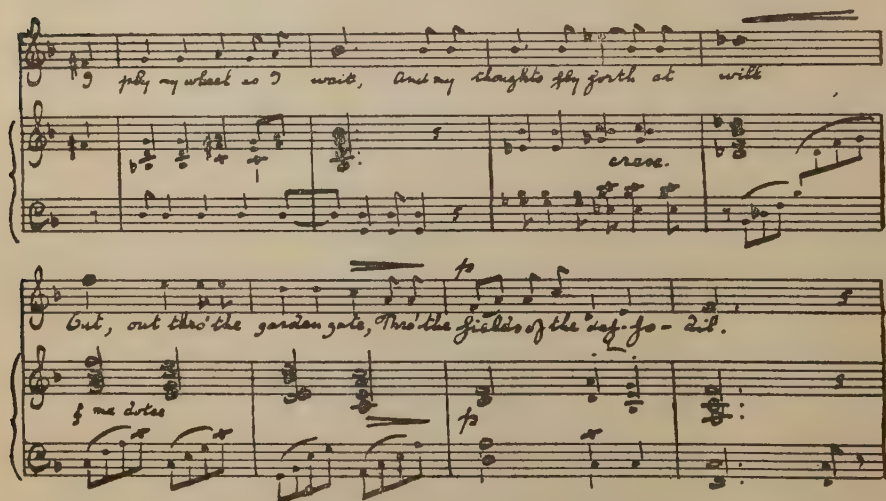 I ply my wheel as I wait, And my thoughts fly forth at will
cresc.
Out, out thro' the garden gate, Thro' the fields of the daf-fo-dil.
p
f ma dolce
p